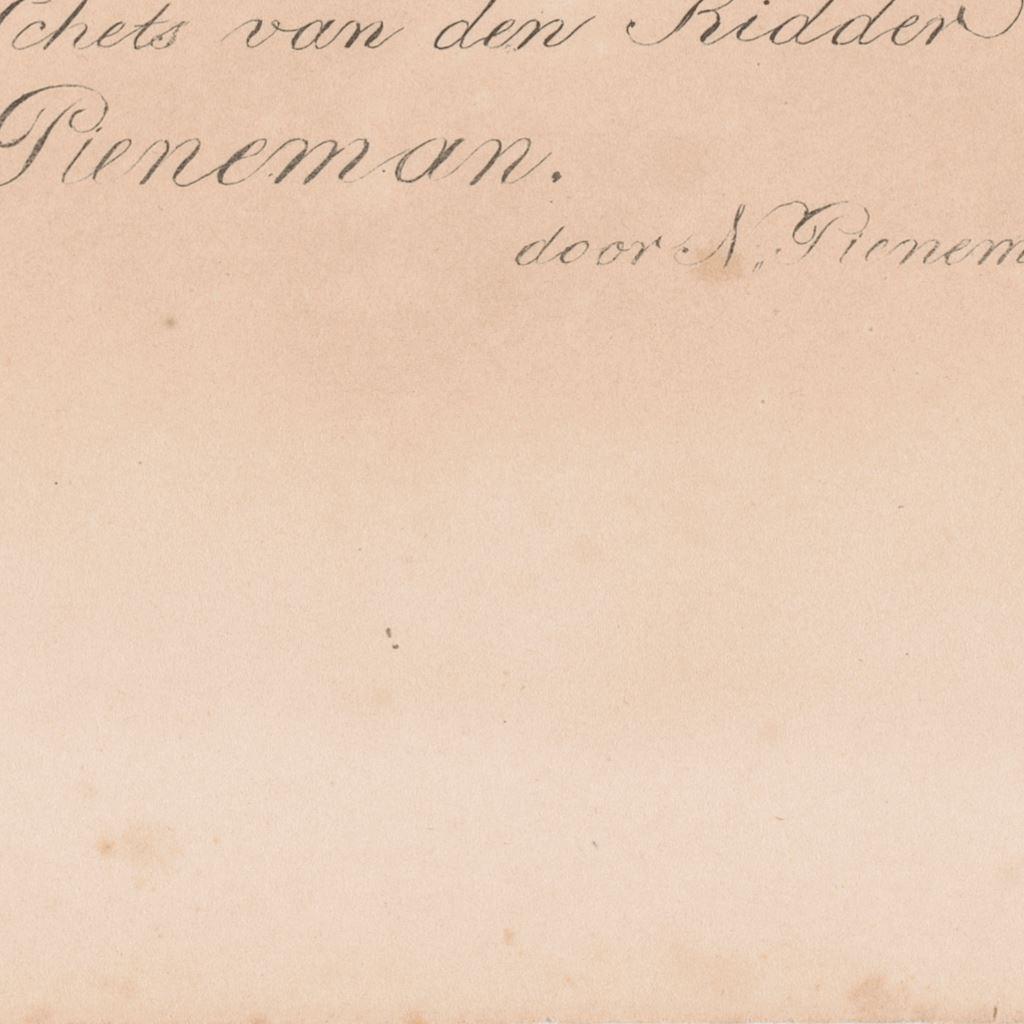 Schets van den Ridder
Pieneman.
door N. Pienem